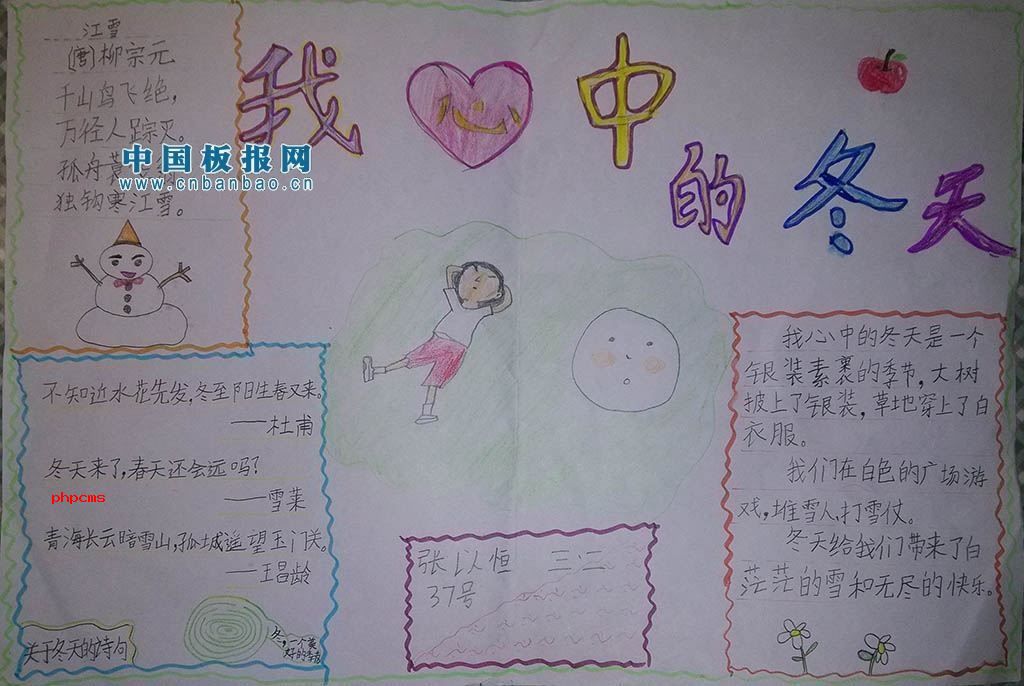 我心中
的冬天
江雪
(唐)柳宗元
千山鸟飞绝,
万径人踪灭。
孤舟蓑
独钩寒江雪。
中国板报网
www.cnbanbao.cn
不知近水花先发,冬至阳生春又来。
——杜甫
冬天来了,春天还会远吗?
phpcms
——雪莱
青海长云暗雪山,孤城遥望玉门关。
——王昌龄
关于冬天的诗句
冬,一个美
好的季节
张以恒 三.二
37号
我心中的冬天是一个
银装素裹的季节,大树
披上了银装,草地穿上了白
衣服。
我们在白色的广场游
戏,堆雪人,打雪仗。
冬天给我们带来了白
茫茫的雪和无尽的快乐。